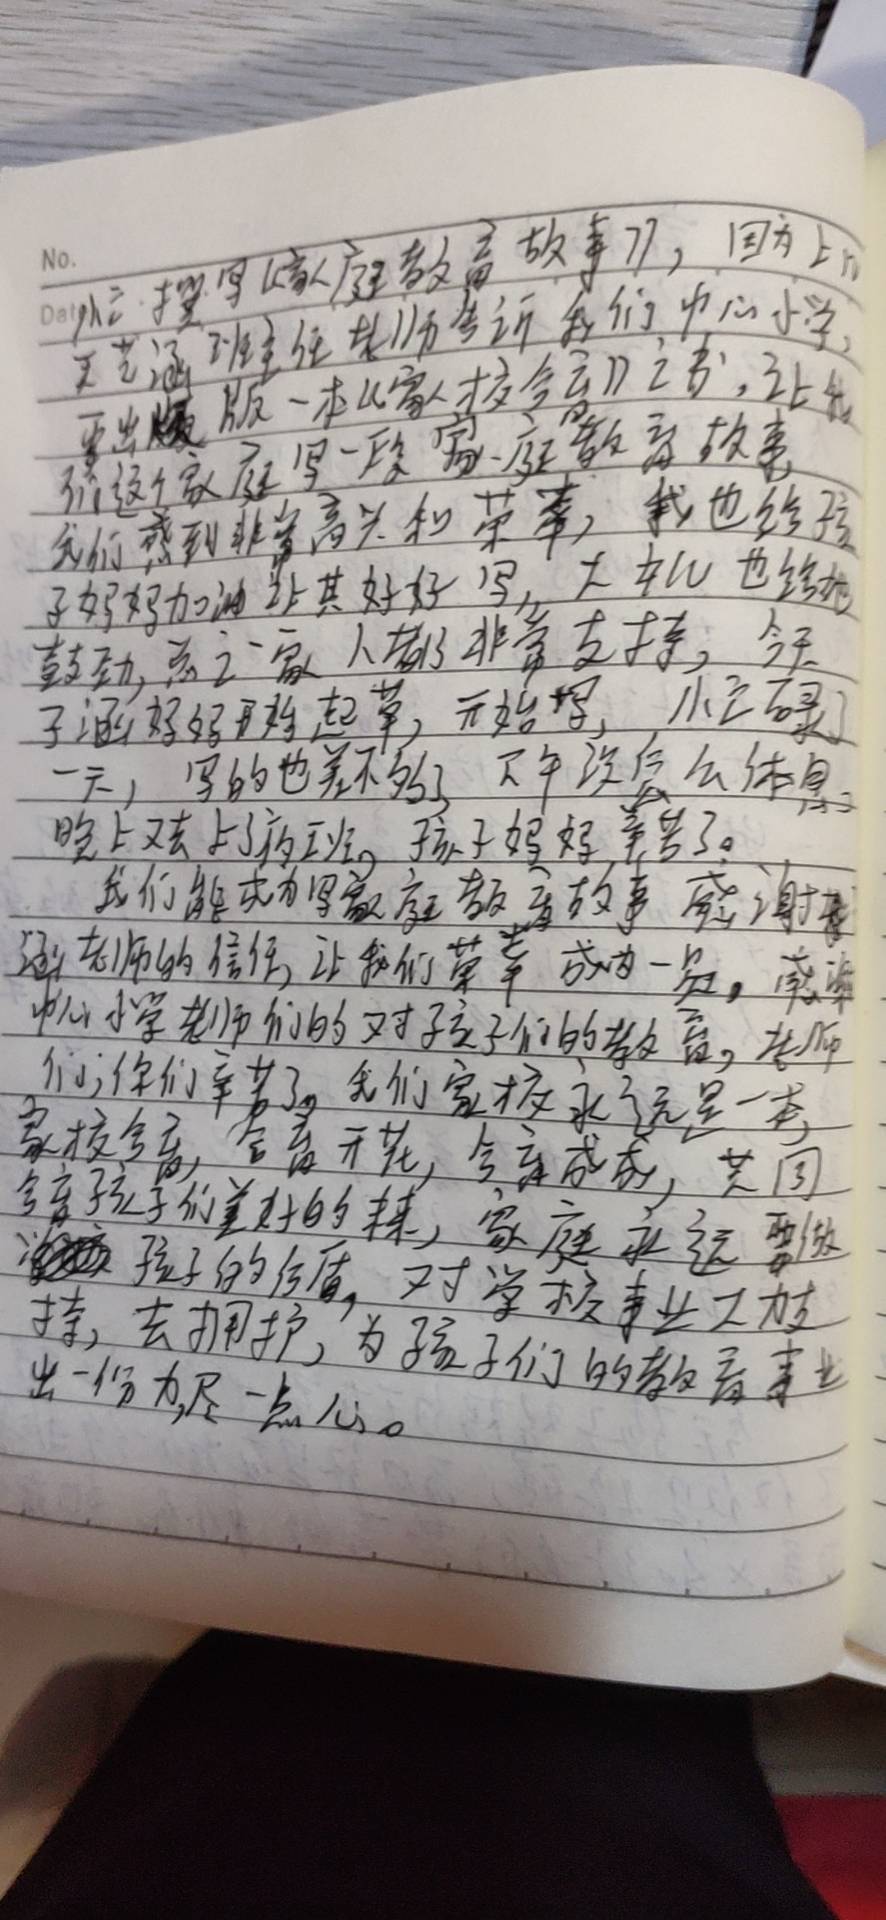 No.
Dat 小云撰写《家庭教育故事》，因为上
艺涵班主任老师告诉我们中心小学，
要出版一本《家校合育》之书，让我
们这个家庭写一段家庭教育故事，
我们感到非常高兴和荣幸，我也给孩
子妈妈加油让其好好写，大也给她
鼓劲，总之一家人都非常支持，今天
子涵妈妈开始起草，开始写，小云碌了
一天，写的也差不多了，下午没怎么休息
晚上又去上了夜班。孩子妈妈辛苦了。
我们能成为写家庭教育故事感谢
涵老师的信任，让我们荣幸成为一员。感谢
中心小学老师们的对孩子们的教育，老师
们，你们辛苦了。我们家校永远是一本，
家校合育，合育开花，合育成长，共同
合育孩子们美好的未来，家庭永远要做
孩子的后盾，对学校事业大力支
持，去拥护，为孩子们的教育事业
出一份力，尽一点心。